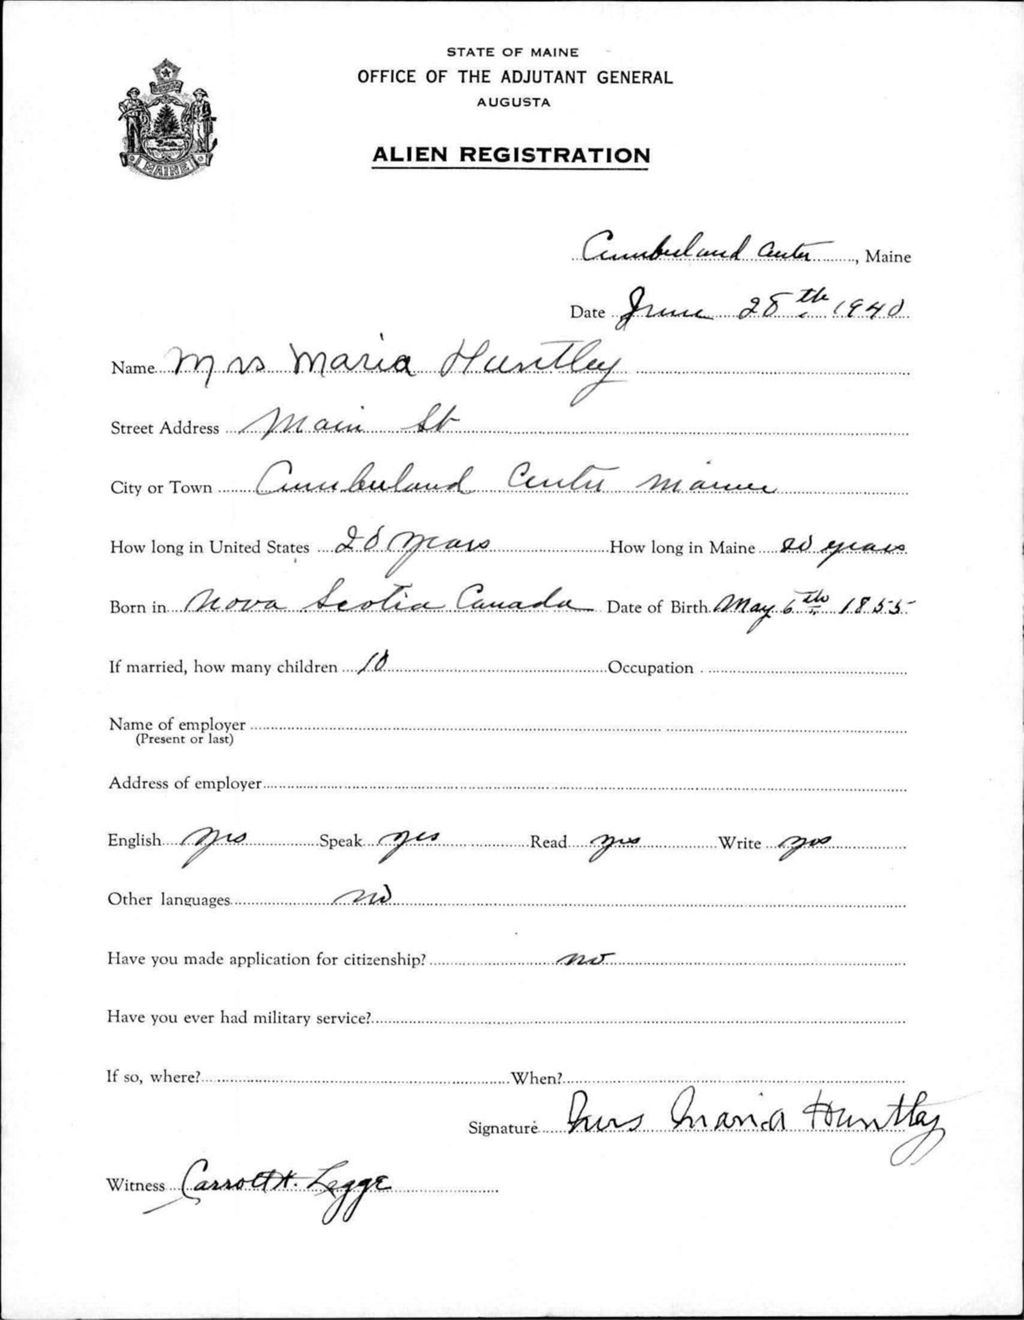 STATE OF MAINE
OFFICE OF THE ADJUTANT GENERAL
AUGUSTA
ALIEN REGISTRATION
MAINE
Cumberland Center, Maine
Date June 28th 1940
Name Mrs Maria Huntley
Street Address Main St
City or Town Cumberland Center Maine
How long in United States 20 years How long in Maine 20 years
Born in Nova Scotia Canada Date of Birth May 6th 1855
If married, how many children 10 Occupation
Name of employer
(Present or last)
Address of employer
English yes Speak yes Read yes Write yes
Other languages no
Have you made application for citizenship? no
Have you ever had military service?
If so, where? When?
Signature Mrs Maria Huntley
Witness Carroll H. Legge